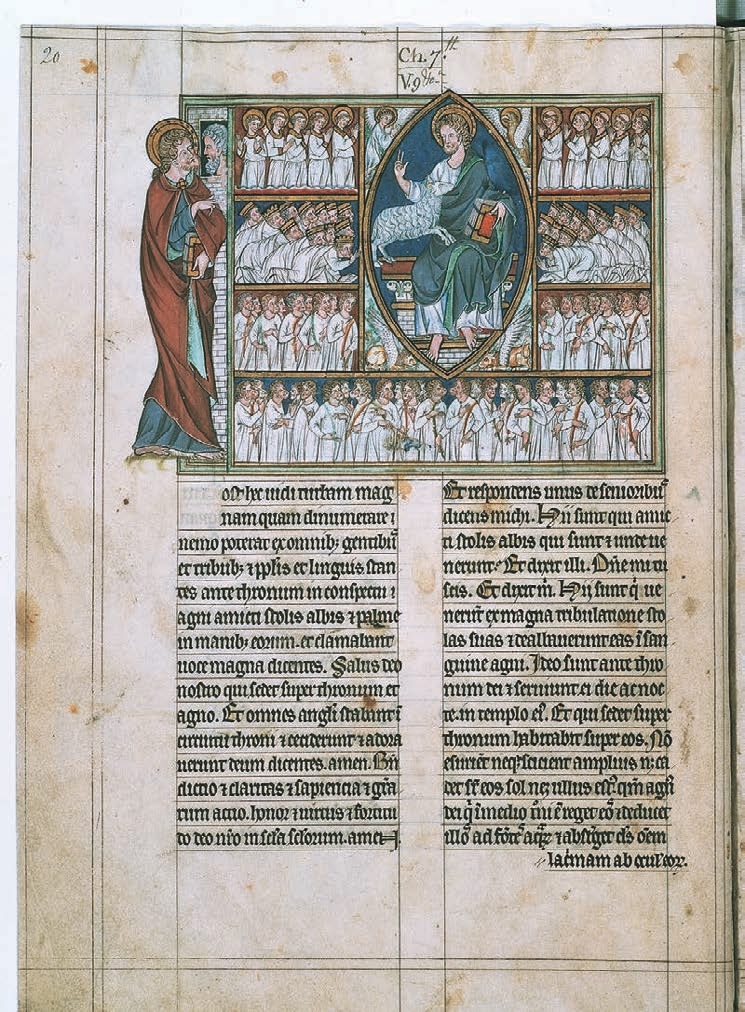 20
Ch. 7th
V. 9 &c
ost hec uidi turbam mag
nam quam dinumerare
nemo poterat ex omnib; gentibus
et tribub; & pplis et linguis stan
tes ante thronum in conspectu
agni amicti stolis albis & palme
in manib; eorum. et clamabant
uoce magna dicentes. Salus deo
nostro qui sedet super thronum et
agno. Et omnes angli stabant i
circuitu throni & ceciderunt & adora
uerunt deum dicentes. amen. Bn
dictio & claritas & sapiencia & gra
rum actio. honor & uirtus & fortitu
do deo nro in scla sclorum. amen.
Et respondens unus de senioribus
dicens michi. Hii sunt qui amic
ti stolis albis qui sunt & unde ue
nerunt. Et dixit illi. Dne mi tu
scis. Et dixit m. Hii sunt q ue
nerut ex magna tribulatione sto
las suas & dealbauerunt eas i san
guine agni. Ideo sunt ante thro
num dei & seruiunt ei die ac noc
te in templo ei. Et qui sedet super
thronum habitabit super eos. No
esurient neq; scicient amplius n; ca
det sr eos sol nec ullus est. qm agn
dei q i medio
illos ad fote aq & absterget ds oem
lacrimam ab ocul eor.